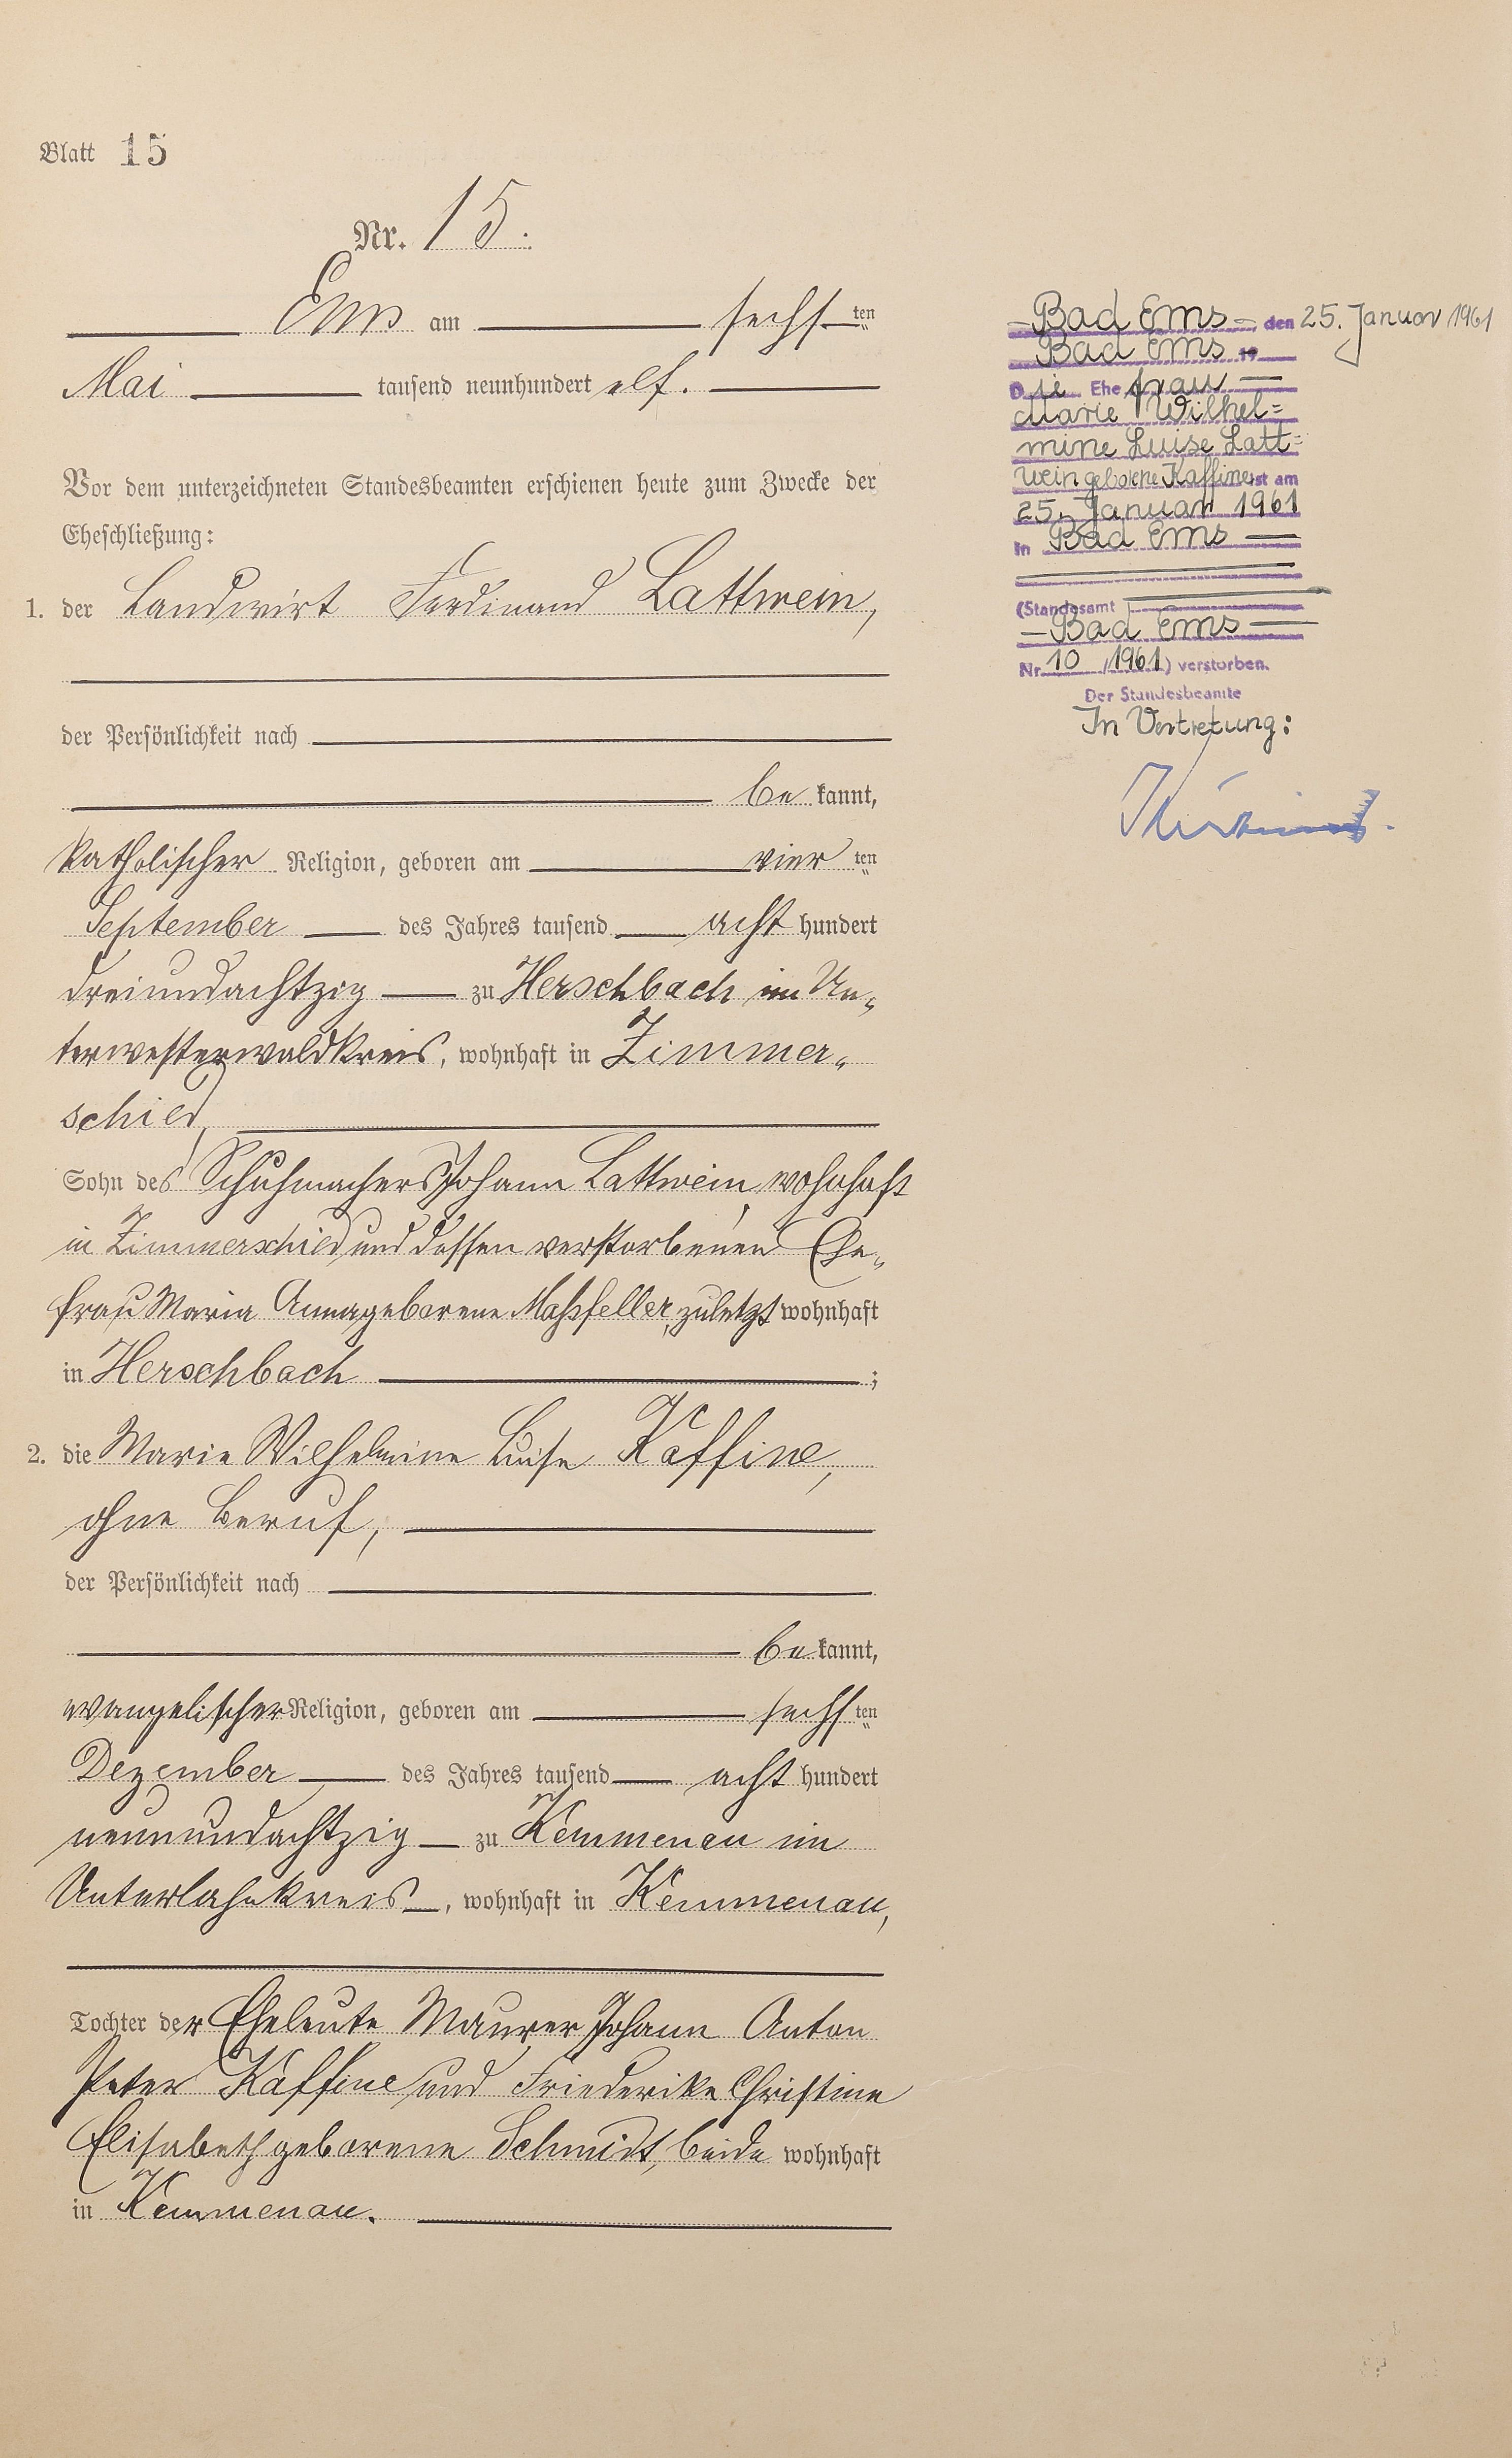 Blatt 15
Nr. 15.
Ems am sechsten
Mai tausend neunhundert elf.
Vor dem unterzeichneten Standesbeamten erschienen heute zum Zwecke der
Eheschließung:
1. der Landwirt Ferdinand Lattwein,
der Persönlichkeit nach
be kannt,
katholischer Religion, geboren am vierten
September des Jahres tausend acht hundert
dreiundachtzig zu Herschbach im Un„
terwesterwaldkreis, wohnhaft in Zimmer„
schied,
Sohn des Schuhmachers Johann Lattwein, wohnhaft
in Zimmerschied und dessen verstorbenen Ehe„
frau Maria Anna geborene Maßfeller, zuletzt wohnhaft
in Herschbach ;
2. die Marie Wilhelmine Luise Kaffine,
ohne Beruf,
der Persönlichkeit nach
be kannt,
evangelischer Religion, geboren am sechsten
Dezember des Jahres tausend acht hundert
neunundachtzig zu Kemmenau im
Unterlahnkreis, wohnhaft in Kemmenau,
Tochter der Eheleute Maurer Johann Anton
Peter Kaffine und Friederike Christine
Elisabeth geborene Schmidt, beide wohnhaft
in Kemmenau.
Bad Ems, den 25. Januar 1961
Bad Ems 19
Die Ehefrau
Marie Wilhel=
mine Luise Latt=
wein geborene Kaffine ist am
25. Januar 1961
in Bad Ems
(Standesamt
Bad Ems
Nr. 10 / 1961) verstorben.
Der Standesbeamte
In Vertretung: